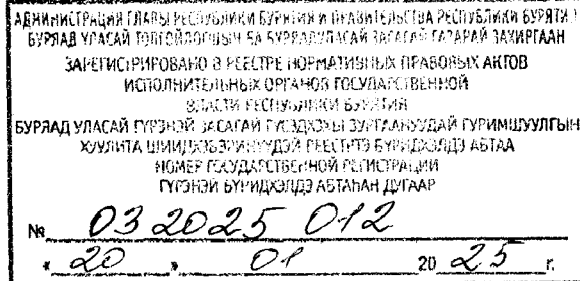 АДМИНИСТРАЦИЯ ГЛАВЫ РЕСПУБЛИКИ БУРЯТИЯ И ПРАВИТЕЛЬСТВА РЕСПУБЛИКИ БУРЯТИЯ
БУРЯАД УЛАСАЙ ТОЛГОЙЛОГШЫН БА БУРЯАД УЛАСАЙ ЗАСАГАЙ ГАЗАРАЙ ЗАХИРГААН
ЗАРЕГИСТРИРОВАНО В РЕЕСТРЕ НОРМАТИВНЫХ ПРАВОВЫХ АКТОВ
ИСПОЛНИТЕЛЬНЫХ ОРГАНОВ ГОСУДАРСТВЕННОЙ
ВЛАСТИ РЕСПУБЛИКИ БУРЯТИЯ
БУРЯАД УЛАСАЙ ГҮРЭНЭЙ ЗАСАГАЙ ГҮЙСЭДХЭХЫ ЗУРГААНУУДАЙ ГУРИМШУУЛГЫН
ХУУЛИТА ШИИДХЭБЭРИНҮҮДЭЙ РЕЕСТРТЭ БҮРИДХЭЛДЭ АБТАА
НОМЕР ГОСУДАРСТВЕННОЙ РЕГИСТРАЦИИ
ГҮРЭНЭЙ БҮРИДХЭЛДЭ АБТАҺАН ДУГААР
№ 03 2025 012
« 20 » 01 20 25 г.